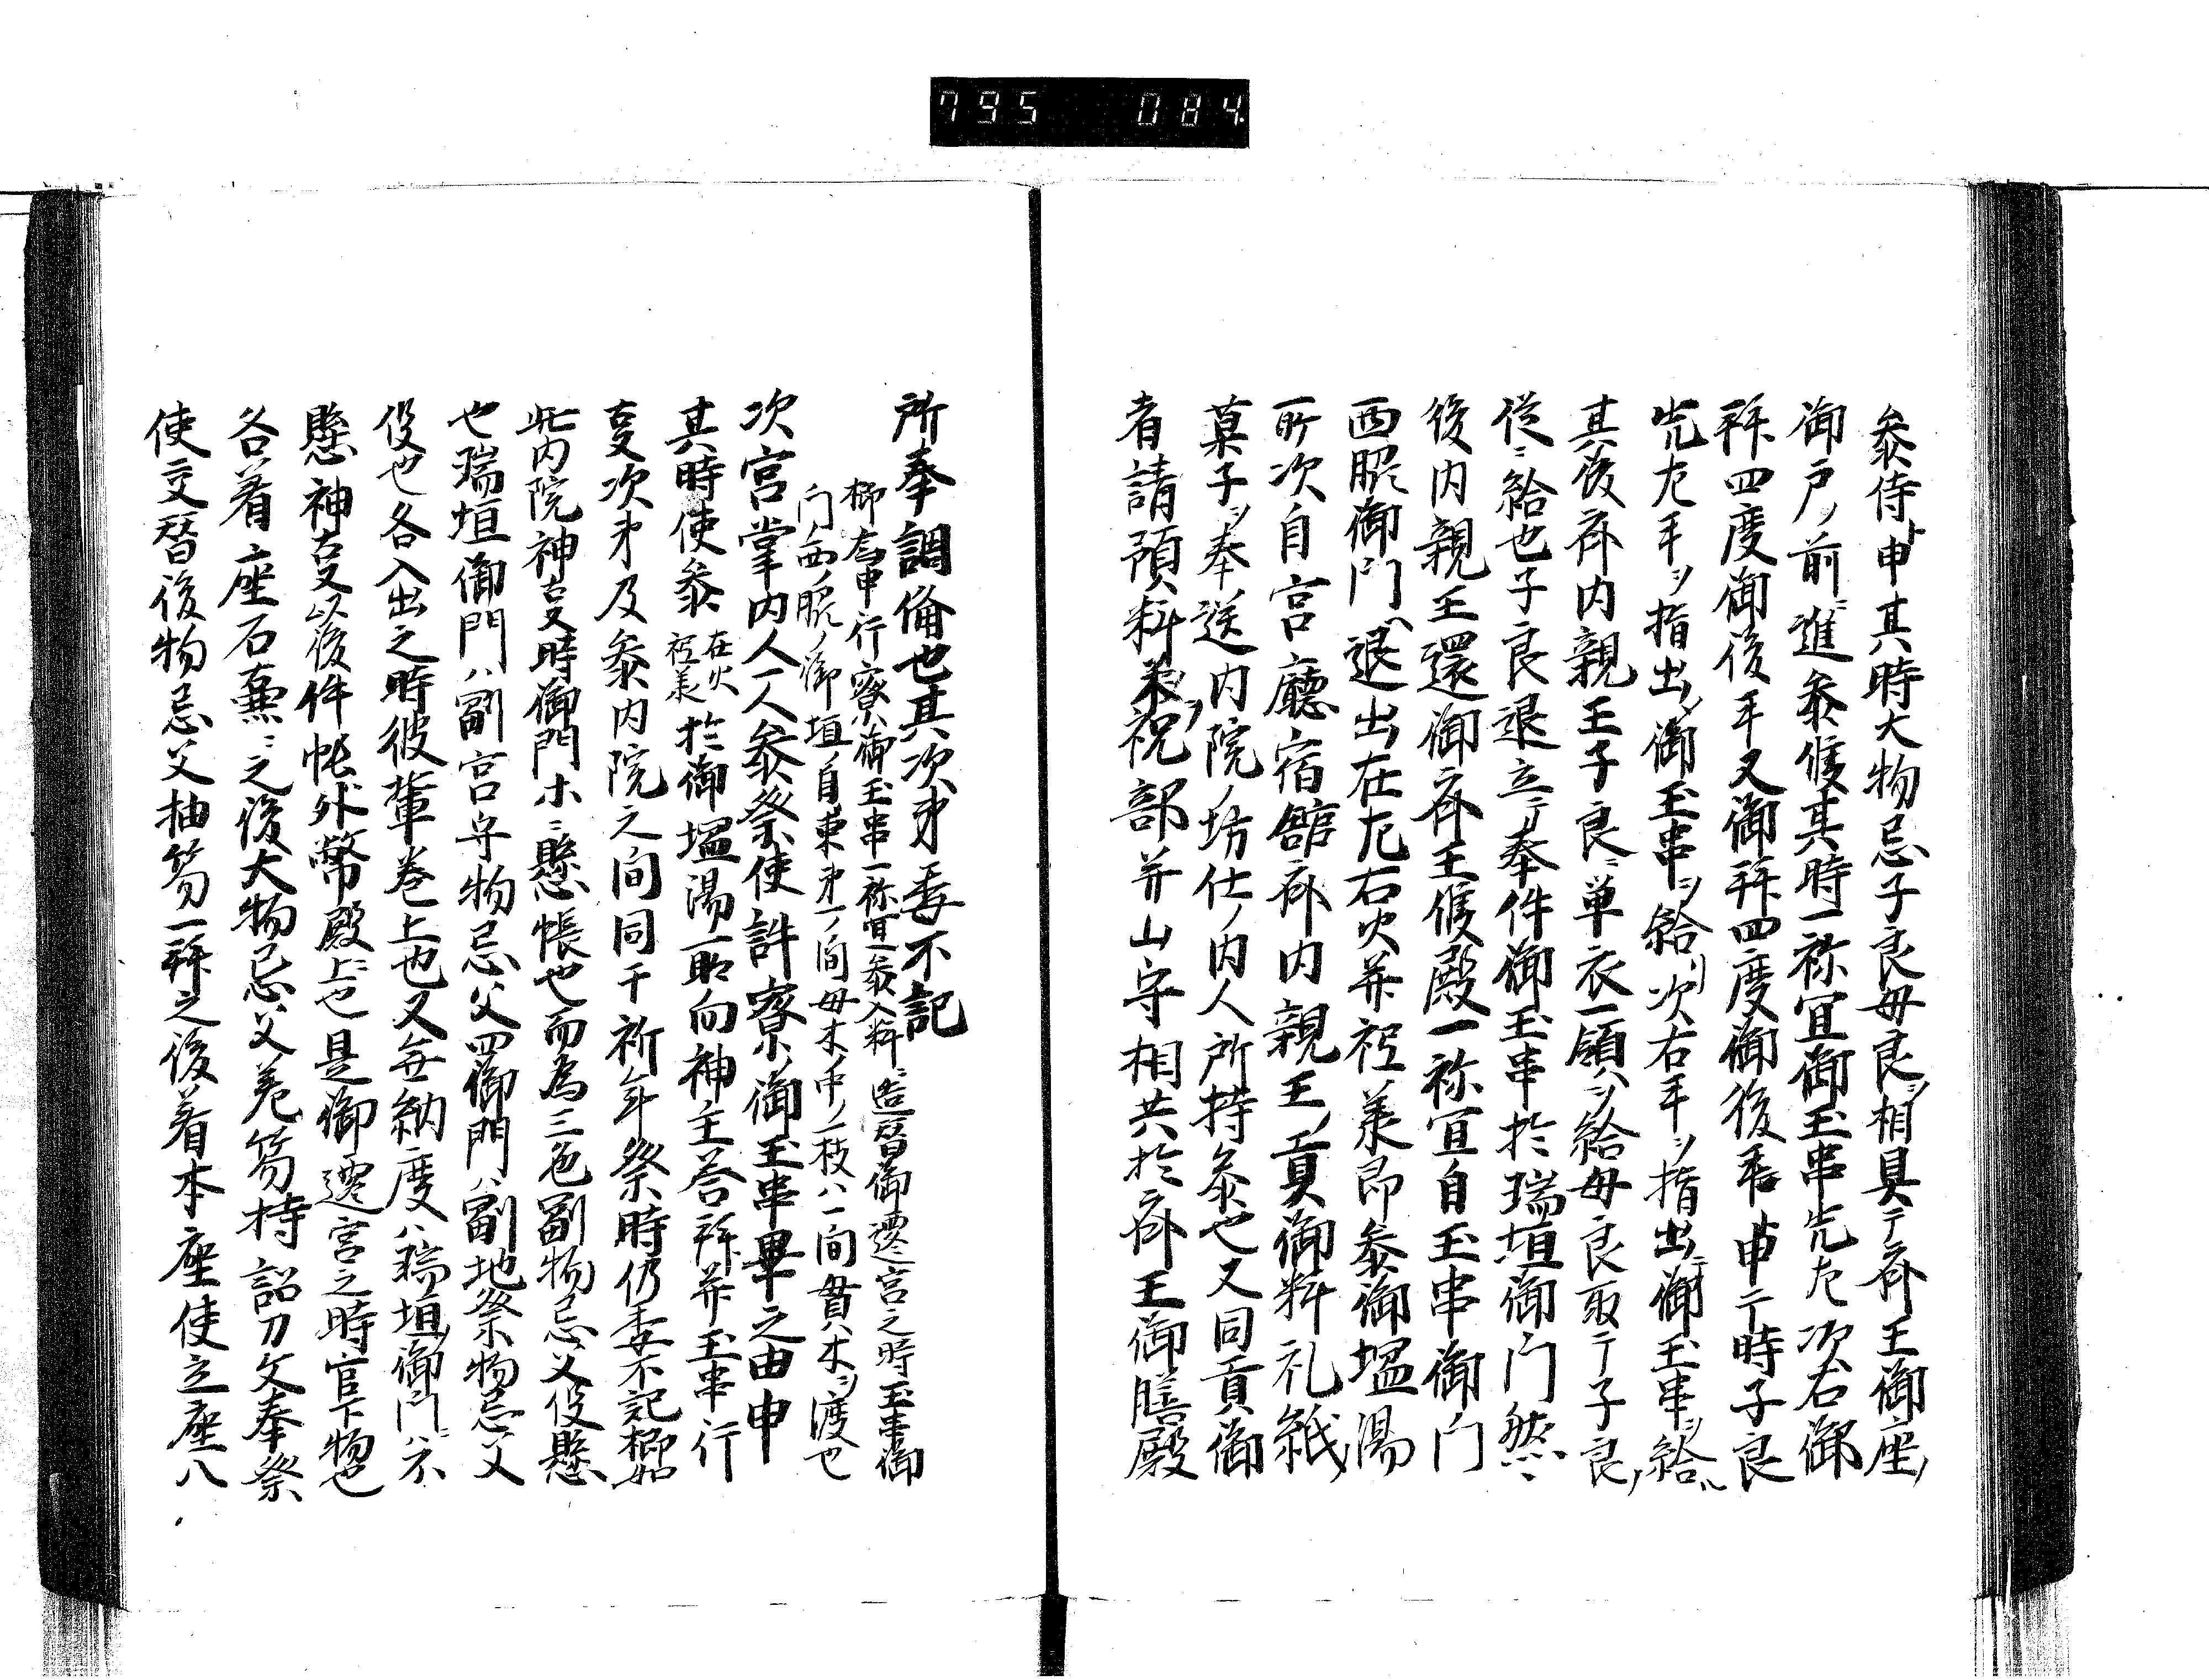 795 084
参侍ト申其時大物忌子良母良ヲ相具テ斎王御座ノ
御戸ノ前ニ進参候其時一祢宜御玉串先左次右御
拜四度御後手又御拜四度御後手申テ時子良
先左手ヲ指出御玉串ヲ給リ次右手ヲ指出テ御玉串ヲ給ル
其後斎内親王子良ニ単衣一領ヲ給母良取テ子良ノ
従ニ給也子良退立テ奉件御玉串於瑞垣御门然
後内親王還御斎王候殿一祢宜自玉串御门
西腋御门ヘ退出在左右火并祓美即参御塩湯
所次自宮廳宿舘斎内親王ノ貢御料礼紙
菓子ヲ奉送内院ノ坊仕ノ内人所持参也又同貢御
者請預料米ヲ祝部并山守相共於斎王御膳殿
所奉調備也其次才委不記
櫛右申行寮御玉串一祢宜参入料ニ造替御遷宮之時玉串御
门ノ西ノ腋ノ御垣ノ自東才一ノ间毎木ノ中ノ一枝ハ一间貫ハ木ヲ渡也
次宮掌内人一人参祭使許寮御玉串畢之由申
其時使参 在火祓美 於御塩湯所向神主答拜并玉串行
事次才及参内院之间同于祈年祭時仍委不記櫛如
此内院神事時御門ホニ懸帳也而為三色副物忌父役懸
也瑞垣御門ハ副宮守物忌父四御門ハ副地祭物忌父
役也各入出之時彼輩巻上也又毎納度ハ瑞垣ノ御门ニハ不
懸神事以後件帳外幣殿ニ上也是御遷宮之時官下物也
各着座石畳ニ之後大物忌父差笏持詔刀文奉祭
使交替後物忌父抽笏一拜之後着本座使立座八